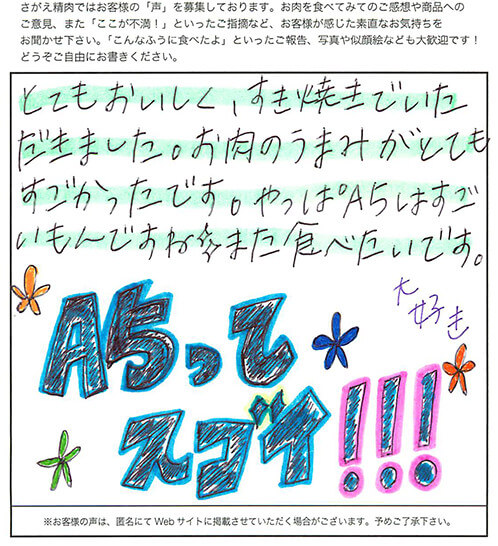 さがえ精肉ではお客様の「声」を募集しております。お肉を食べてみてのご感想や商品への
ご意見、また「ここが不満！」といったご指摘など、お客様が感じた素直なお気持ちを
お聞かせ下さい。「こんなふうに食べたよ」といったご報告、写真や似顔絵なども大歓迎です！
どうぞご自由にお書きください。
とてもおいしく、すき焼きでいた
だきました。お肉のうまみがとても
すごかったです。やっぱ°A5はすご
いもんですね☆また食べたいです。
大好き
A5って
スゴイ!!!
※お客様の声は、匿名にてWebサイトに掲載させていただく場合がございます。予めご了承下さい。